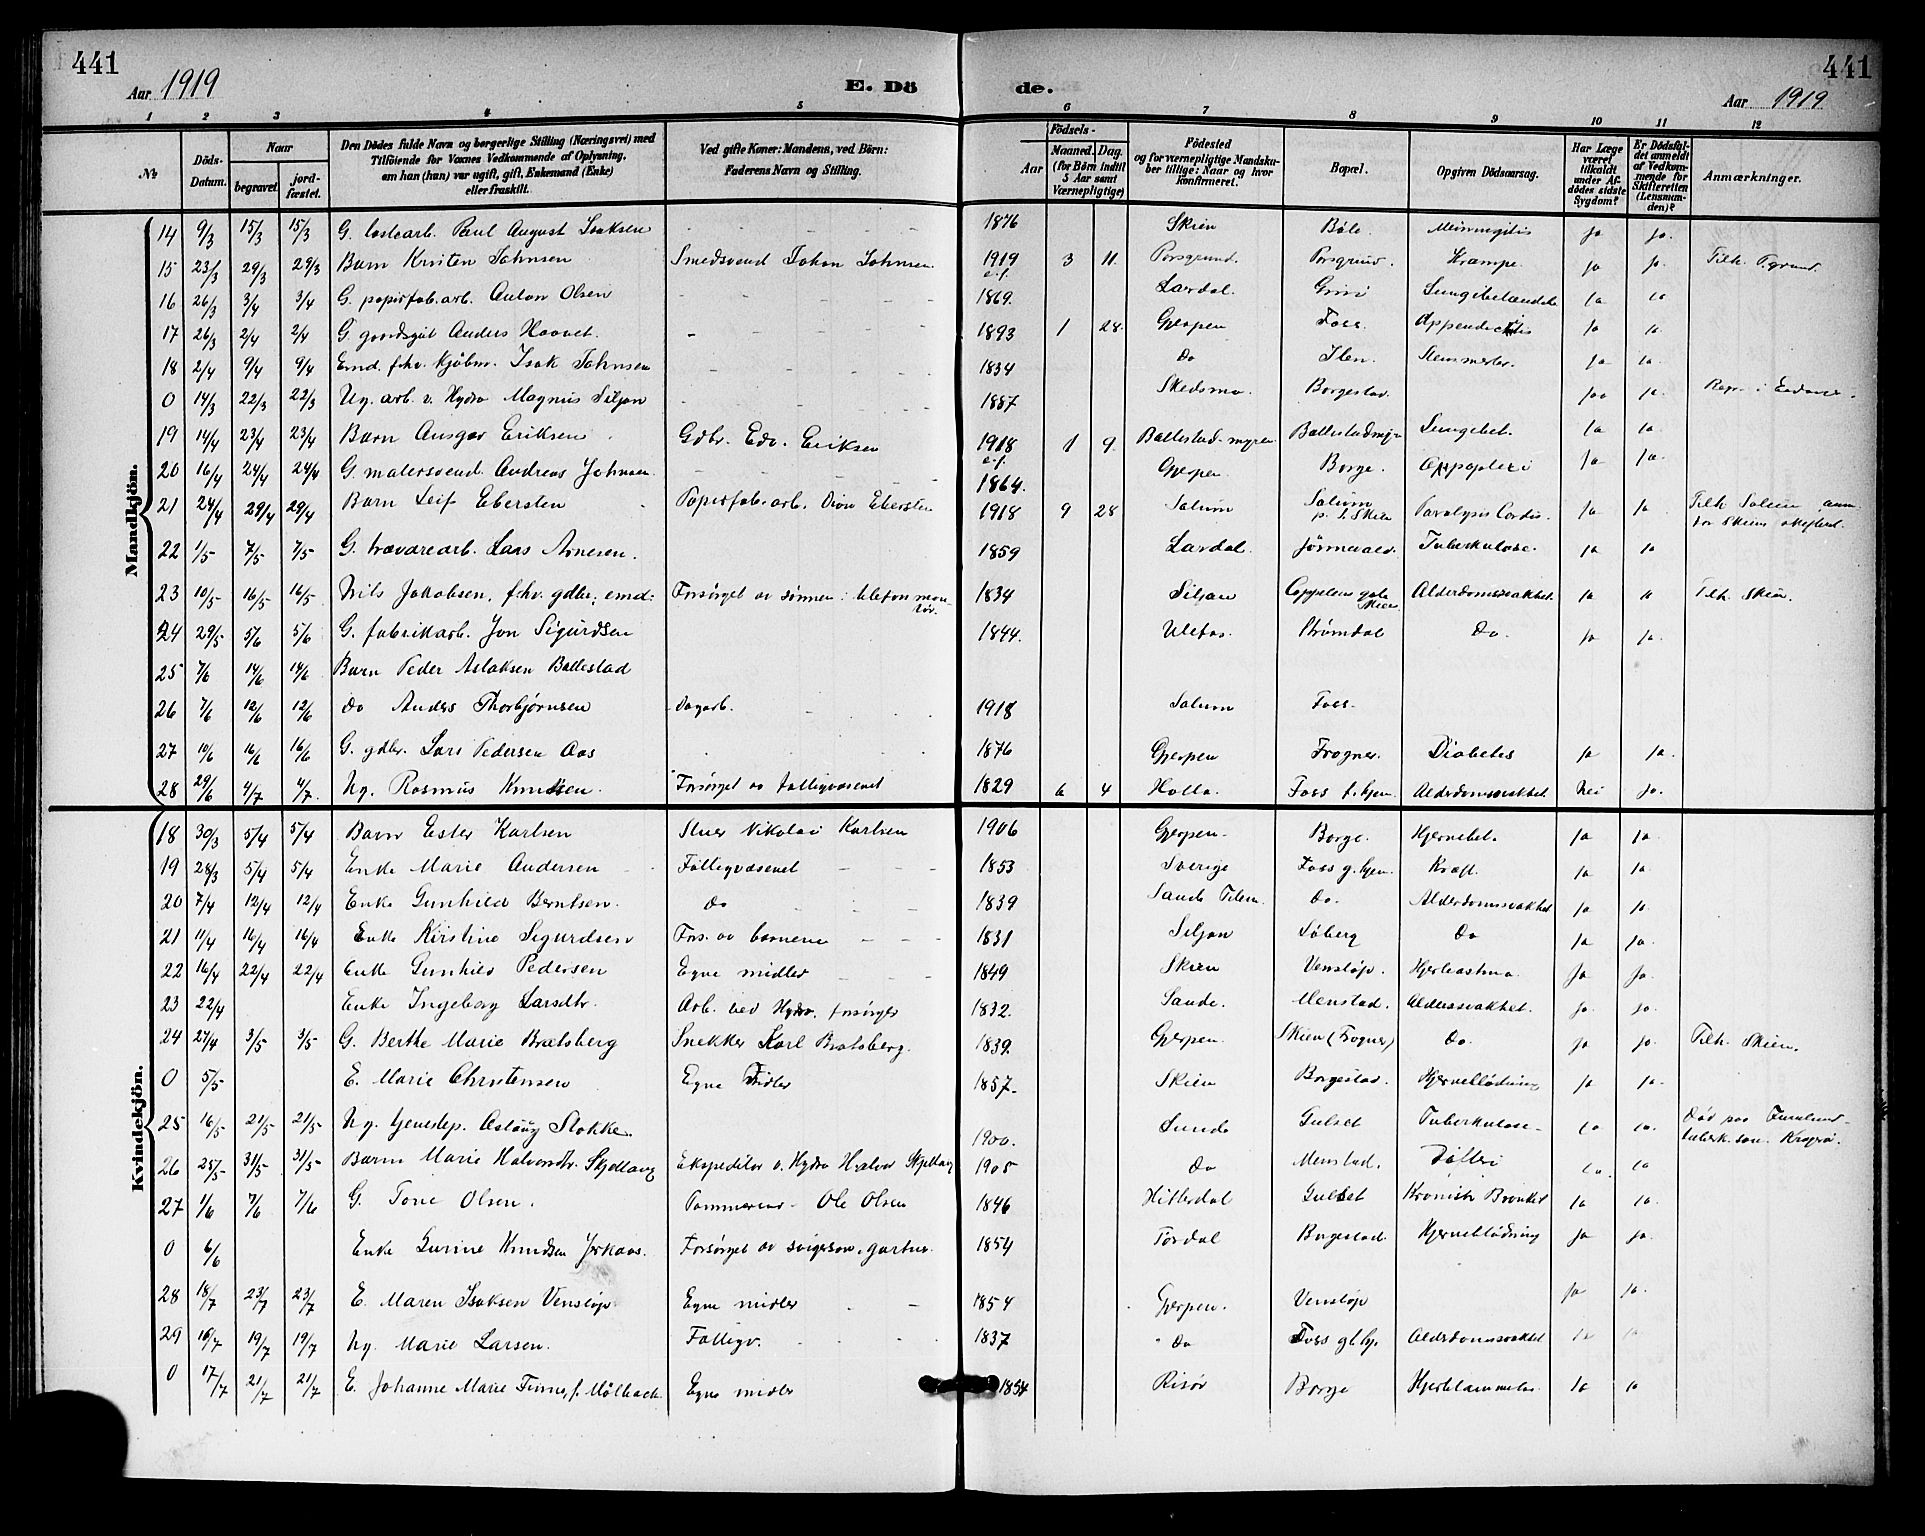 441
Aar 1919
E. Dö
de.
441
Aar 1919
1 2 3 4 5 6 7 8 9 10 11 12
№
Döds-Datum.
Naar
begravet.
jord-fæstet.
Den Dödes fulde Navn og borgerlige Stilling (Næringsvei) med
Tilföiende for Voxnes Vedkommende af Oplysning,
om han (hun) var ugift, gift, Enkemand (Enke)
eller fraskilt.
Ved gifte Koner: Mandens, ved Börn:
Faderens Navn og Stilling.
Födsels-
Aar
Maaned. Dag.
(for Börn indtil
5 Aar samt
Værnepligtige)
Födested
og for værnepligtige Mandsku-
ber tillige: Naar og hvor
konfirmeret.
Bopæl.
Opgiven Dödsaarsag.
Har Læge
været
tilkaldt
under Af-
dödes sidste
Sygdom?
Er Dödsful-
det anmeldt
af Vedkom-
mende for
Skifteretten
(Lensman-
den)?
Anmærkninger.
Mandkjön.
14 9/3 15/3 15/3 G. lostearb. Paul August Isaksen 1876 Skien Böle Meningitis ja ja.
15 23/3 29/3 29/3 Barn Kristen Johnsen Smedsvend Johan Johnsen 1919 e.f. 3 11. Porsgrund. Porsgrund. Krampe. ja ja. Tilh. P.grund.
16 26/3 3/4 3/4 G. papirfab.arb. Anton Olsen 1869. Lardal. Grini ja ja
17 26/3 2/4 2/4 G. Anders Haavet. 1893 1 28. Gjerpen Foss. Appendicitis ja ja.
18 2/4 9/4 9/4 Emd. f.hv. kjöbm. Isak Johnsen 1834 Do ja ja.
0 14/3 22/3 22/3 Ug. arb. v. Hydro Magnus Siljan 1887 Skedsmo. Borgestad. jaa ja.
19 14/4 23/4 23/4 Barn Ansgar Eriksen Gdbr. Edv. Eriksen 1918 e.f. 1 9. Ballestad-myren Ballestadmyr Lungebet. ja ja.
20 16/4 24/4 24/4 G. malersvend Andreas Johnsen 1864. Gjerpen. Borge. Appoplexi ja ja.
21 24/4 29/4 29/4 Barn Leif Ebersten Papirfab.arb. Ebersten 1918 9 28 Solum Solum p. t. Skien Paralysis Cordis. ja ja Tilh. Solum
22 1/5 7/5 7/5 G. trævarearb. Lars Arnesen. 1859 Lardal. Tuberkulose. ja ja
23 10/5 16/5 16/5 Nils Jakobsen, f.hv. gdbr. emd. Forsörget av sönnen: telefonmontör. 1834 Siljan Skien Alderdomssvakhet. ja ja Tilh. Skien.
24 29/5 5/6 5/6 G. fabrikarb. Jon Sigurdsen 1844. Ulefos. Strömdal Do. ja ja.
25 7/6 14/6 14/6 Barn Peder Aslaksen Ballestad
26 7/6 12/6 12/6 Do Anders Thorbjörnsen Dagarb. 1918 Solum Foss.
27 10/6 16/6 16/6 G. gdbr. Lars Pedersen Aas 1876 Gjerpen Frogner. Diabetes ja ja.
28 29/6 4/7 4/7. Ug. Rasmus Knudsen. Forsörget av fattigvæsenet 1829 6 4 Holla. Foss f.hjem. Alderdomssvakhet. Nei ja.
Kvindekjön.
18 30/3 5/4 5/4 Barn Ester Karlsen Stuer Nikolai Karlsen 1906 Gjerpen. Borge. Hjernebet. ja ja.
19 28/3 5/4 5/4 Enke Marie Andersen Fattigvæsenet 1853 Sverige Foss g.hjem. Kræft. ja ja.
20 7/4 12/4 12/4 Enke Gunhild Berntsen. Do 1839 Sande Telem. Do. Alderdomssvakhet ja ja.
21 11/4 16/4 16/4 Enke Kirstine Sigurdsen Fors. av barnene 1831 Siljan Söberg Do ja ja.
22 16/4 22/4 22/4 Enke Gunhild Pedersen Egne midler 1849 Skien Venslöp. Hjerteastma. ja ja.
23 22/4 Enke Ingeborg Larsdtr. Arb. ved Hydro. forsörger 1832. Sande. Menstad. Alderssvakhet. ja. ja.
24 27/4 3/5 3/5 G. Berthe Marie Bratsberg Snekker Karl Bratsberg. 1839. Gjerpen. Skien (Frogner) Do. ja ja. Tilh. Skien.
0 5/5 E. Marie Christensen Egne Midler 1857. Skien Borgestad. Hjerneblödning ja ja.
25 16/5 21/5 21/5 Ug. tjenestep. Aslaug Stokke. 1900. Lunde Gulset Tuberkulose. ja ja. Död paa
26 25/5 31/5 31/5 Barn Marie Halvorsdtr. Skjellaug Ekspeditör v. Hydro Halvor Skjellaug 1905 Do Menstad. Difteri ja. ja
27 1/6 7/6 7/6 G. Tone Olsen. Ole Olsen 1846 Hitterdal Gulset Kronisk Bronkit ja ja.
0 6/6 Enke Gurine Knudsen Forsörget av svigersön, gartner. 1854 Tördal Borgestad. Hjerneblödning ja ja.
28 18/7 23/7 23/7 E. Maren Isaksen Venslöp. Egne midler 1854 Gjerpen. Venslöp ja ja.
29 16/7 19/7 19/7 Ug. Marie Larsen. Fattigv. 1837 Do Foss gl.hj. Alderdomssvakhet ja ja
0 17/7 21/7 21/7 E. Johanne Marie Finne, f. Mölbach. Egne midler 1854 Risör Borge ja ja